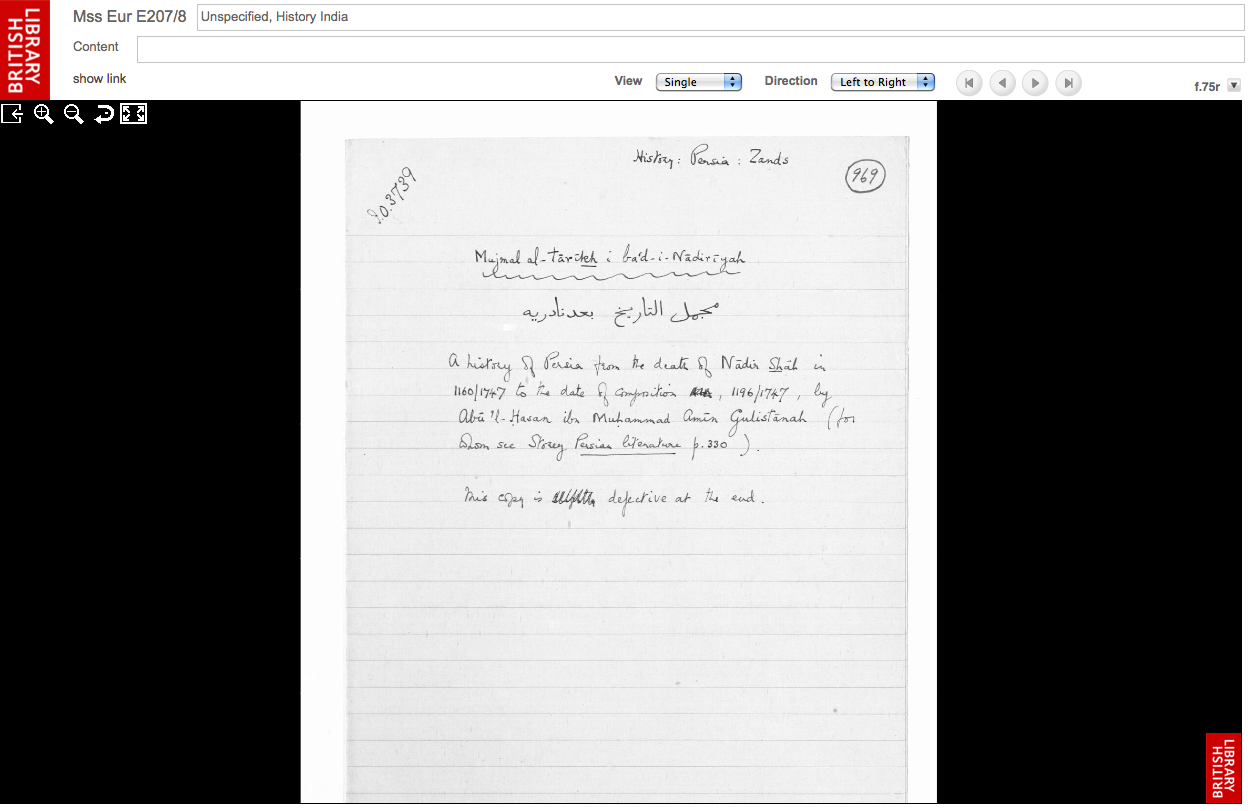 BRITISH LIBRARY
Mss Eur E207/8
Unspecified, History India
Content
show link
View
Single
Direction
Left to Right
f.75r
History : Persia : Zands
969
I.O. 3739
Mujmal al-tārīkh i ba'd-i-Nādirīyah
مجمل التاريخ بعد نادريه
A history of Persia from the death of Nādir Shāh in
1160/1747 to the date of composition , 1196/1747, by
Abū 'l-Ḥasan ibn Muḥammad Amīn Gulistānah (for
whom see Storey Persian literature p. 330 ).
This copy is defective at the end.
BRITISH LIBRARY